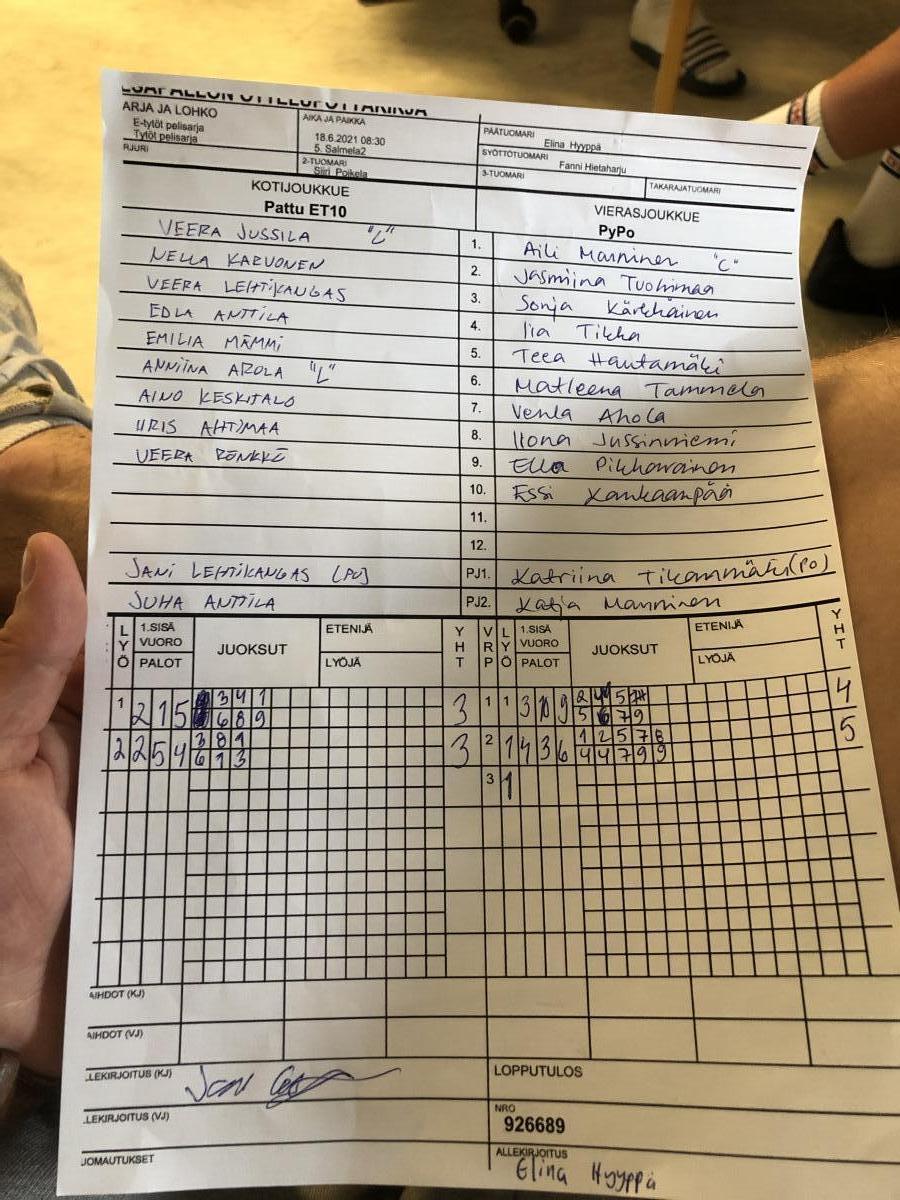 ESAPALLON OTTELUPÖYTÄKIRJA
ARJA JA LOHKO
E-tytöt pelisarja
Tytöt pelisarja
RJURI
AIKA JA PAIKKA
18.6.2021 08:30
5. Salmela2
2-TUOMARI
Siiri Poikela
PÄÄTUOMARI
Elina Hyyppä
SYÖTTÖTUOMARI
Fanni Hietaharju
3-TUOMARI
TAKARAJATUOMARI
KOTIJOUKKUE
Pattu ET10
VIERASJOUKKUE
PyPo
VEERA JUSSILA "L" 1. Aili Manninen "C"
NELLA KARVONEN 2. Jasmiina Tuohimaa
VEERA LEHTIKANGAS 3. Sonja Kärkkäinen
EDLA ANTTILA 4. Iia Tikka
EMILIA MÄMMI 5. Teea Hautamäki
ANNIINA AROLA "L" 6. Matleena Tammela
AINO KESKITALO 7. Venla Ahola
IIRIS AHTIMAA 8. Ilona Jussinniemi
VEERA RÖNKKÖ 9. Ella Pikkarainen
10. Essi Kankaanpää
11.
12.
JANI LEHTIKANGAS (PO) PJ1. Katriina (PO)
JUHA ANTTILA PJ2. Katja Manninen
LYÖ 1.SISÄ VUORO PALOT JUOKSUT ETENIJÄ LYÖJÄ YHT VRP LYÖ 1.SISÄ VUORO PALOT JUOKSUT ETENIJÄ LYÖJÄ YHT
1 2 1 5 3 4 1 3 1 1 3 10 9 2 5 4
6 8 9 5 6 7 9
2 2 5 4 3 8 1 3 2 1 4 3 6 1 2 5 7 8 5
6 1 3 4 4 7 9 9
3 1
AIHDOT (KJ)
AIHDOT (VJ)
LEKIRJOITUS (KJ)
LEKIRJOITUS (VJ)
JOMAUTUKSET
LOPPUTULOS
NRO
926689
ALLEKIRJOITUS
Elina Hyyppä